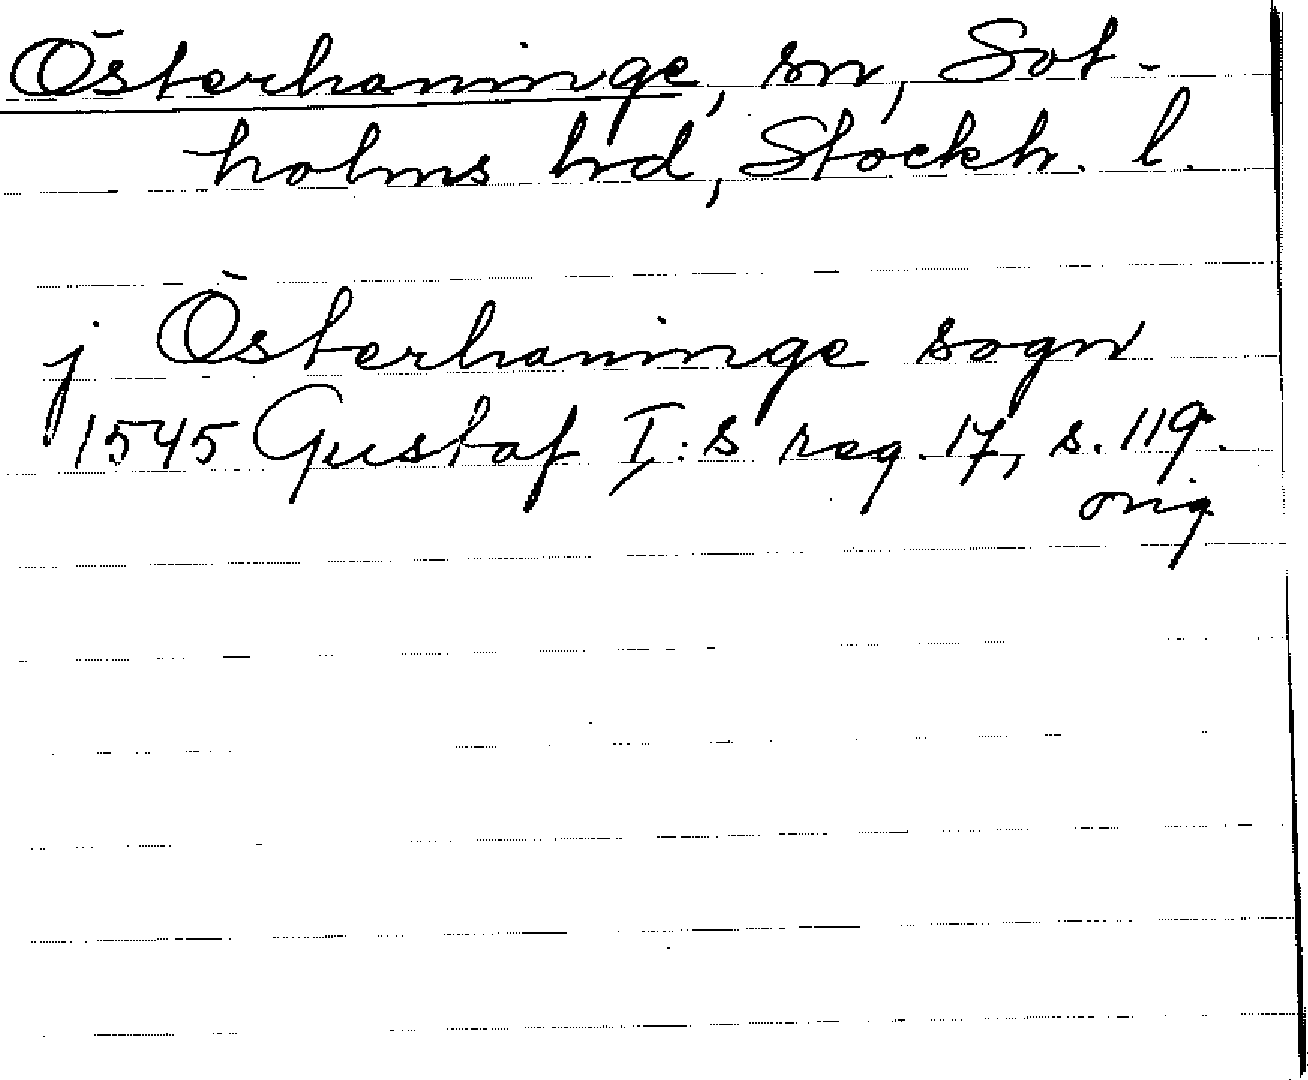 Österhaninge, sn, Sot-
holms hd, Stockh. l.
j Österhaninge sogn
1545 Gustaf I:s reg. 17, s. 119.
orig